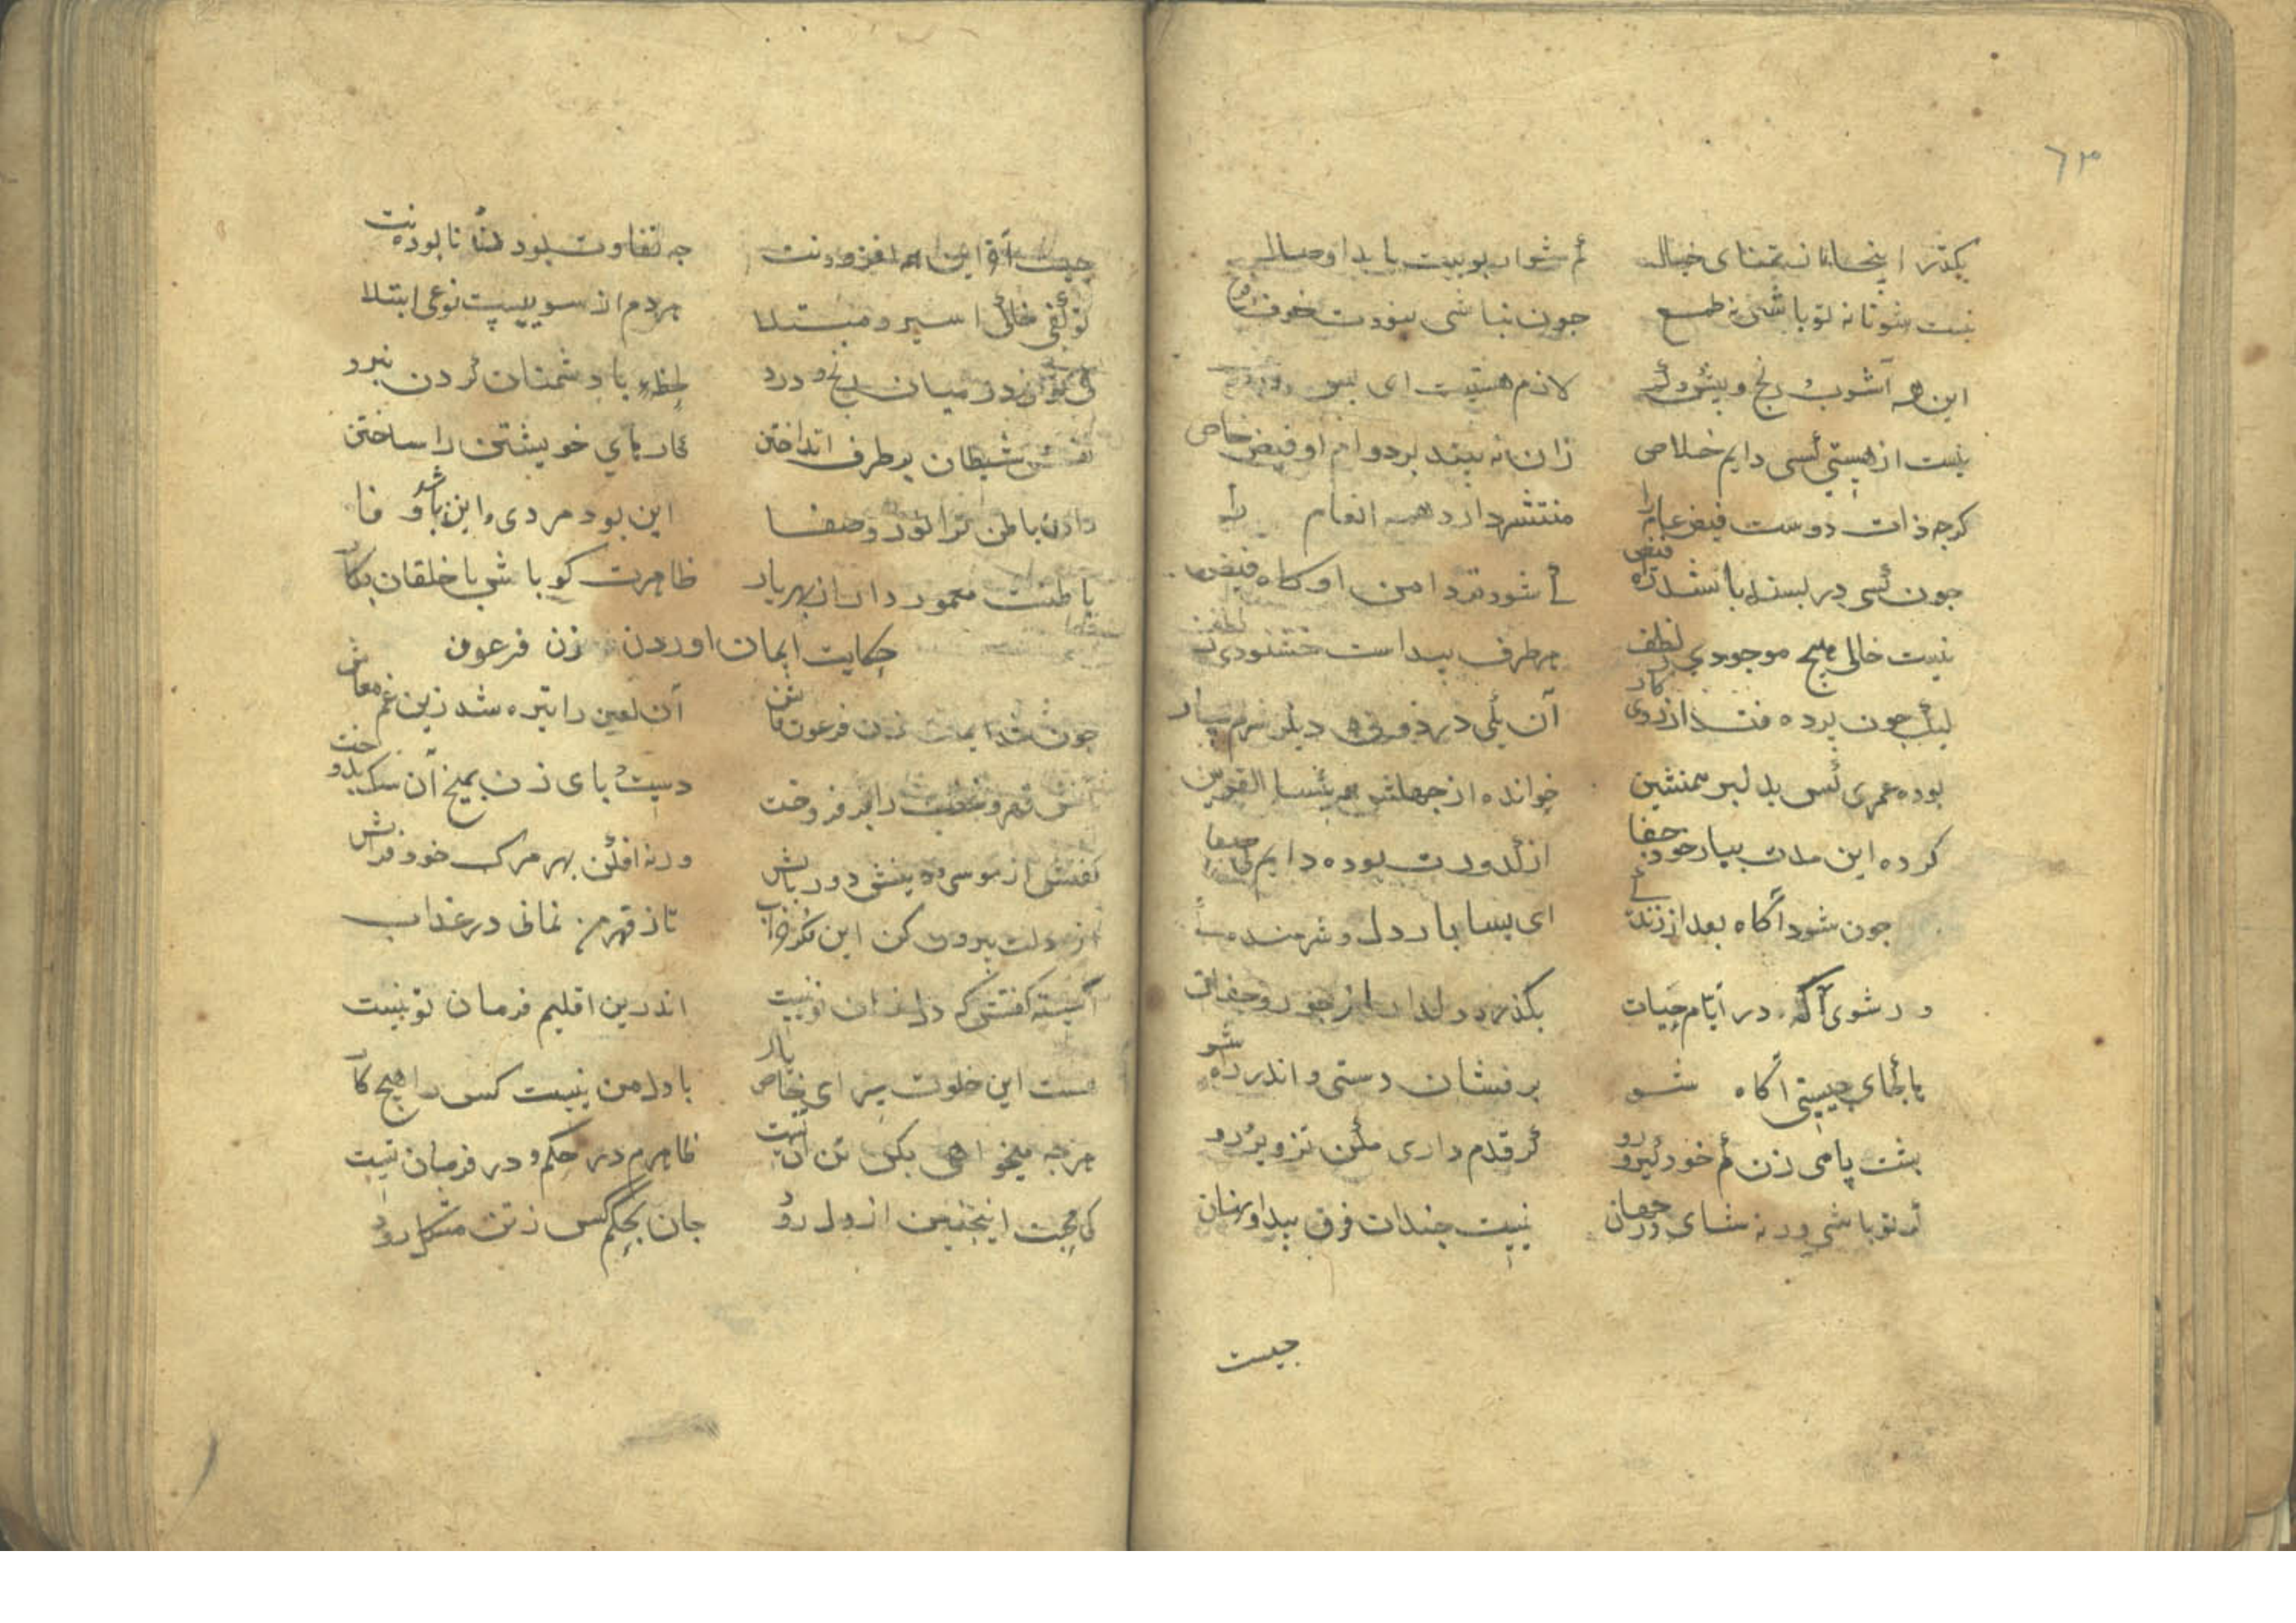 ٦٣
بگذر اینجا از تمنای خیال کم شو ار بویت باید او وصال
نیست شو تا نه تو باشی نه طمع چون نباشی نبودت خوف
این همه آشوب رنج و لازم هستیت ای پسر
نیست از هستی کسی دایم خلاصی زان نه بیند بر دوام او فیض خاص
کرجه ذات دوست فیض عام را منتشر دارد همه انعام را
جون کسی دربسته باشد فیض کی شود تر دامن او کاه فیض
نیست خالی هیچ موجودی لطف هر طرف پیداست خشنودی
لیک جون برده فتد از روی کار آن یکی در ذوق دیگر شرمسار
بوده عمری کس بدلبر همنشین خوانده از جهلش هم بئسا القرین
کرده این مدت بیار خود جفا از کدورت بوده دایم
جون شود آگاه بعد از زندگی ای بسا بار دل و شرمندگی
ور شوی آگه در ایام حیات بگذرد دلدار از جور و جفات
با کجای جیستی آگاه شو برفشان دستی و اندر راه شو
بشت پامی زن کم خود گیرو رو گر قدم داری مکن تزویر رو
گر تو باشی ور نه شای در جهان نیست جندان فرق پیدا و نهان
جیست
جیست آو این همه افزودنت جه تفاوت بود تا نابودنت
اسیر و مبتلا هردم از سوییت نوعی ابتلا
در میان رنج و درد لحظهء با دشمنان کردن نبرد
نفس شیطان بر طرف انداختن کارهای خویشتن را ساختن
دادن باطن ترا نور و صفا این بود مردی و این باشد وفا
باطنت معمور دار از بهر یار ظاهرت کو باش با خلقان بکار
حکایت ایمان اوردن زن فرعون
جون شد ایمان زن فرعون فاش آن لعین را تیره شد زین غم معاش
آتش قهر و غضب را برفروخت دست و بای زن بمیخ آن سک بدوخت
کفتش از موسی و دینش دور باش ورنه افکن بهر مرک خود فرش
از دلت بیرون کن این تا ز قهر من نمانی در عذاب
آسیه کفتش که دل زان تو نیست اندرین اقلیم فرمان تو نیست
هست این خلوت سرای خاص یار با دل من نیست کس را هیچ کار
هرجه میخواهی بکن تن آن تست ظاهرم در حکم و در فرمان تست
کی محبت اینجنین از دل رود جان بحکم کس ز تن مشکل رود